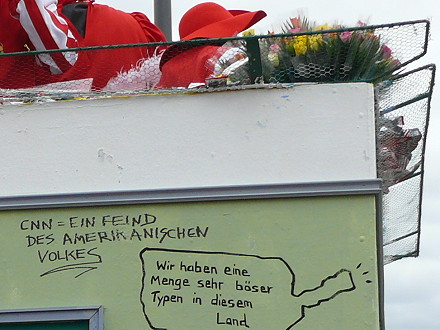 CNN = EIN FEIND
DES AMERIKANISCHEN
VOLKES
Wir haben eine
Menge sehr böser
Typen in diesem
Land